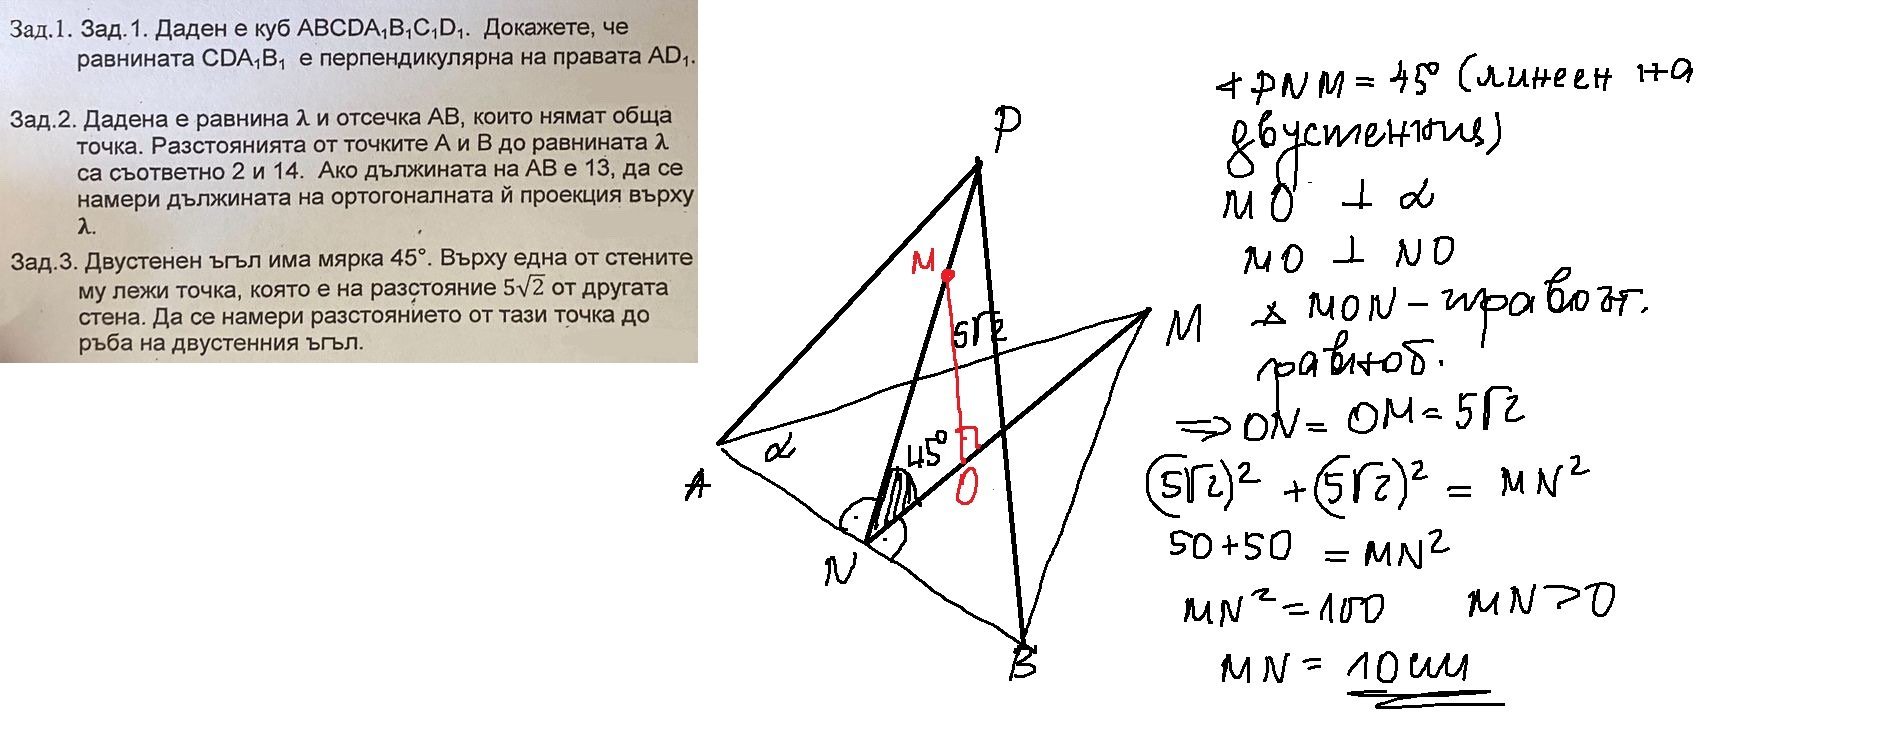 Зад.1. Зад.1. Даден е куб ABCDA₁B₁C₁D₁. Докажете, че
равнината CDA₁B₁ е перпендикулярна на правата AD₁.
Зад.2. Дадена е равнина λ и отсечка AB, които нямат обща
точка. Разстоянията от точките A и B до равнината λ
са съответно 2 и 14. Ако дължината на AB е 13, да се
намери дължината на ортогоналната ѝ проекция върху
λ.
Зад.3. Двустенен ъгъл има мярка 45°. Върху една от стените
му лежи точка, която е на разстояние 5√2 от другата
стена. Да се намери разстоянието от тази точка до
ръба на двустенния ъгъл.
P
M
5√2
M
α
45°
A
O
N
B
∢PNM = 45° (линеен на
двустенния)
MO ⊥ α
MO ⊥ NO
△ MON - правоъг.
равноб.
⇒ ON = OM = 5√2
(5√2)² + (5√2)² = MN²
50+50 = MN²
MN² = 100 MN > 0
MN = 10 cm